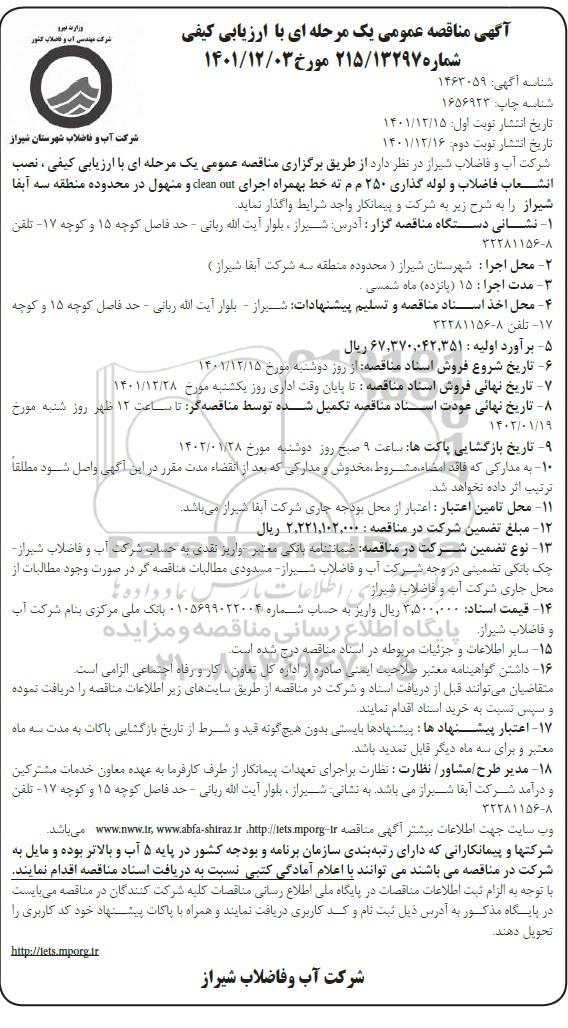 وزارت نیرو
شرکت مهندسی آب و فاضلاب کشور
شرکت آب و فاضلاب شهرستان شیراز
آگهی مناقصه عمومی یک مرحله ای با ارزیابی کیفی
شماره ۲۱۵/۱۳۲۹۷ مورخ ۱۴۰۱/۱۲/۰۳
شناسه آگهی: ۱۴۶۳۰۵۹
شناسه چاپ: ۱۶۵۶۹۲۳
تاریخ انتشار نوبت اول: ۱۴۰۱/۱۲/۱۵
تاریخ انتشار نوبت دوم: ۱۴۰۱/۱۲/۱۶
شرکت آب و فاضلاب شیراز در نظر دارد از طریق برگزاری مناقصه عمومی یک مرحله ای با ارزیابی کیفی ، نصب
انشعاب فاضلاب و لوله گذاری ۲۵۰ م م ته خط بهمراه اجرای clean out و منهول در محدوده منطقه سه آبفا
شیراز را به شرح زیر به شرکت و پیمانکار واجد شرایط واگذار نماید.
۱- نشانی دستگاه مناقصه گزار : آدرس: شیراز ، بلوار آیت الله ربانی - حد فاصل کوچه ۱۵ و کوچه ۱۷- تلفن
۸-۳۲۲۸۱۱۵۶
۲- محل اجرا : شهرستان شیراز ( محدوده منطقه سه شرکت آبفا شیراز )
۳- مدت اجرا : ۱۵ (پانزده) ماه شمسی .
۴- محل اخذ اسناد مناقصه و تسلیم پیشنهادات: شیراز - بلوار آیت الله ربانی - حد فاصل کوچه ۱۵ و کوچه
۱۷- تلفن ۸-۳۲۲۸۱۱۵۶
۵- برآورد اولیه : ۶۷,۳۷۰,۰۴۲,۳۵۱ ریال
۶- تاریخ شروع فروش اسناد مناقصه: از روز دوشنبه مورخ ۱۴۰۱/۱۲/۱۵
۷- تاریخ نهائی فروش اسناد مناقصه : تا پایان وقت اداری روز یکشنبه مورخ ۱۴۰۱/۱۲/۲۸
۸- تاریخ نهائی عودت اسناد مناقصه تکمیل شده توسط مناقصه‌گر: تا ساعت ۱۲ ظهر روز شنبه مورخ
۱۴۰۲/۰۱/۱۹
۹- تاریخ بازگشایی پاکت ها: ساعت ۹ صبح روز دوشنبه مورخ ۱۴۰۲/۰۱/۲۸
۱۰- به مدارکی که فاقد امضاء،مشروط،مخدوش و مدارکی که بعد از انقضاء مدت مقرر در این آگهی واصل شود مطلقاً
ترتیب اثر داده نخواهد شد.
۱۱- محل تامین اعتبار : اعتبار از محل بودجه جاری شرکت آبفا شیراز می‌باشد.
۱۲- مبلغ تضمین شرکت در مناقصه : ۲,۲۲۱,۱۰۲,۰۰۰ ریال
۱۳- نوع تضمین شرکت در مناقصه: ضمانتنامه بانکی معتبر -واریز نقدی به حساب شرکت آب و فاضلاب شیراز-
چک بانکی تضمینی در وجه شرکت آب و فاضلاب شیراز- مسدودی مطالبات مناقصه گر در صورت وجود مطالبات از
محل جاری شرکت آب و فاضلاب شیراز
۱۴- قیمت اسناد: ۳,۵۰۰,۰۰۰ ریال واریز به حساب شماره ۰۱۰۵۶۹۹۰۲۲۰۰۴ بانک ملی مرکزی بنام شرکت آب
و فاضلاب شیراز.
۱۵- سایر اطلاعات و جزئیات مربوطه در اسناد مناقصه درج شده است.
۱۶- داشتن گواهینامه معتبر صلاحیت ایمنی صادره از اداره کل تعاون ، کار و رفاه اجتماعی الزامی است.
متقاضیان می‌توانند قبل از دریافت اسناد و شرکت در مناقصه از طریق سایت‌های زیر اطلاعات مناقصه را دریافت نموده
و سپس نسبت به خرید اسناد اقدام نمایند.
۱۷- اعتبار پیشنهاد ها : پیشنهادها بایستی بدون هیچ‌گونه قید و شرط از تاریخ بازگشایی پاکات به مدت سه ماه
معتبر و برای سه ماه دیگر قابل تمدید باشد.
۱۸- مدیر طرح/مشاور/ نظارت : نظارت براجرای تعهدات پیمانکار از طرف کارفرما به عهده معاون خدمات مشترکین
و درآمد شرکت آبفا شیراز می باشد. به نشانی: شیراز ، بلوار آیت الله ربانی - حد فاصل کوچه ۱۵ و کوچه ۱۷- تلفن
۸-۳۲۲۸۱۱۵۶
وب سایت جهت اطلاعات بیشتر آگهی مناقصه www.nww.ir, www.abfa-shiraz.ir ,http://iets.mporg-ir می‌باشد.
شرکتها و پیمانکارانی که دارای رتبه‌بندی سازمان برنامه و بودجه کشور در پایه ۵ آب و بالاتر بوده و مایل به
شرکت در مناقصه می باشند می توانند با اعلام آمادگی کتبی نسبت به دریافت اسناد مناقصه اقدام نمایند.
با توجه به الزام ثبت اطلاعات مناقصات در پایگاه ملی اطلاع رسانی مناقصات کلیه شرکت کنندگان در مناقصه می‌بایست
در پایگاه مذکور به آدرس ذیل ثبت نام و کد کاربری دریافت نمایند و همراه با پاکات پیشنهاد خود کد کاربری را
تحویل دهند.
http://iets.mporg.ir
شرکت آب وفاضلاب شیراز